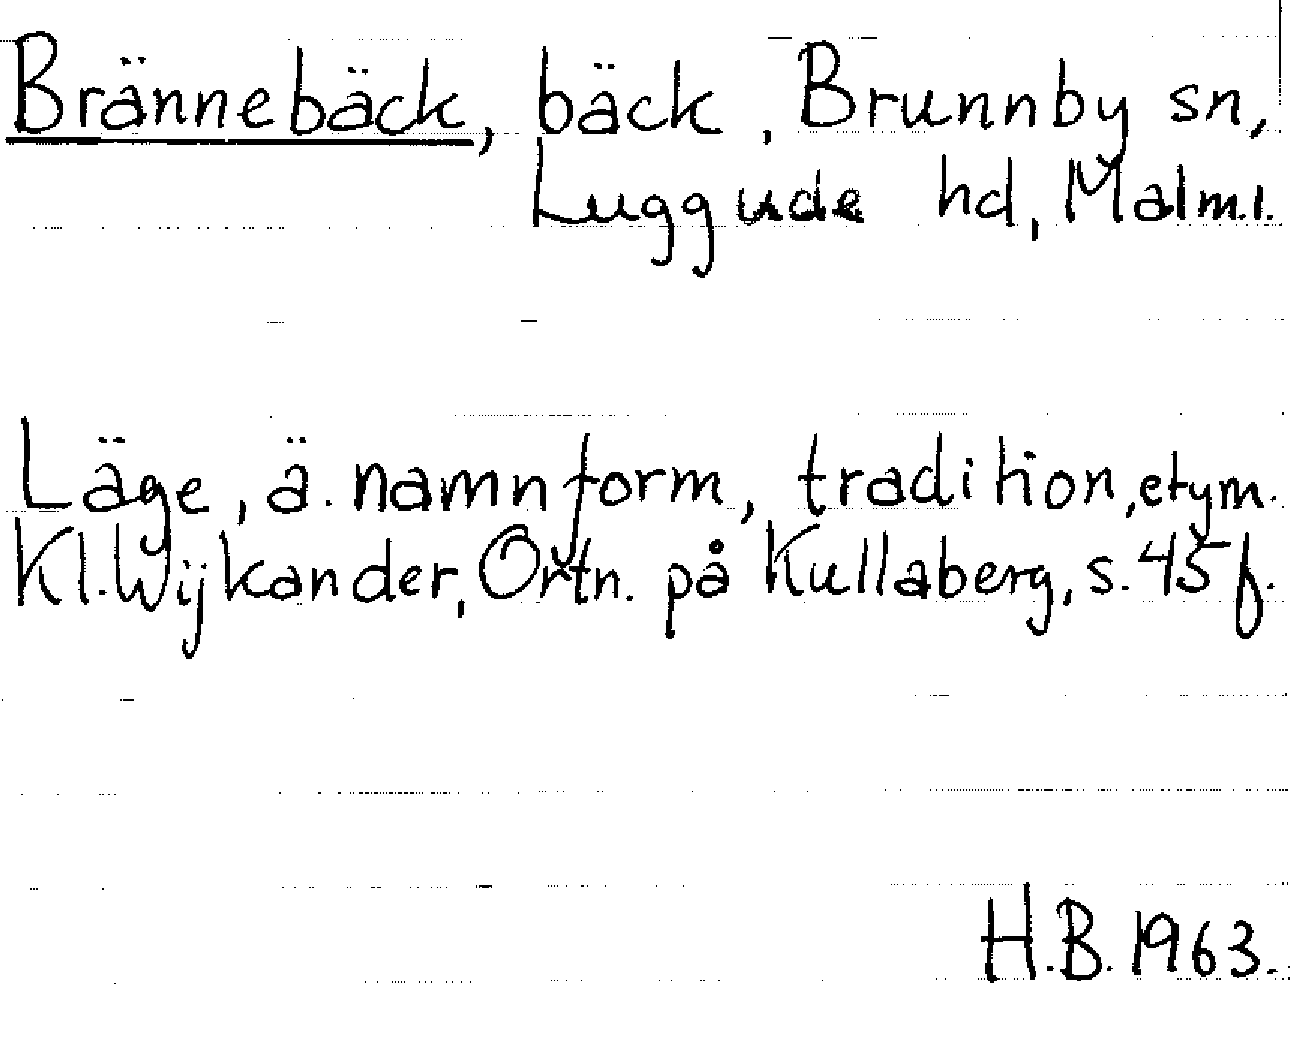 Brännebäck, bäck, Brunnby sn,
Luggude hd, Malm.l.
Läge, ä. namnform, tradition, etym.
Kl. Wijkander, Ortn. på Kullaberg, s. 45 f.
H.B. 1963.